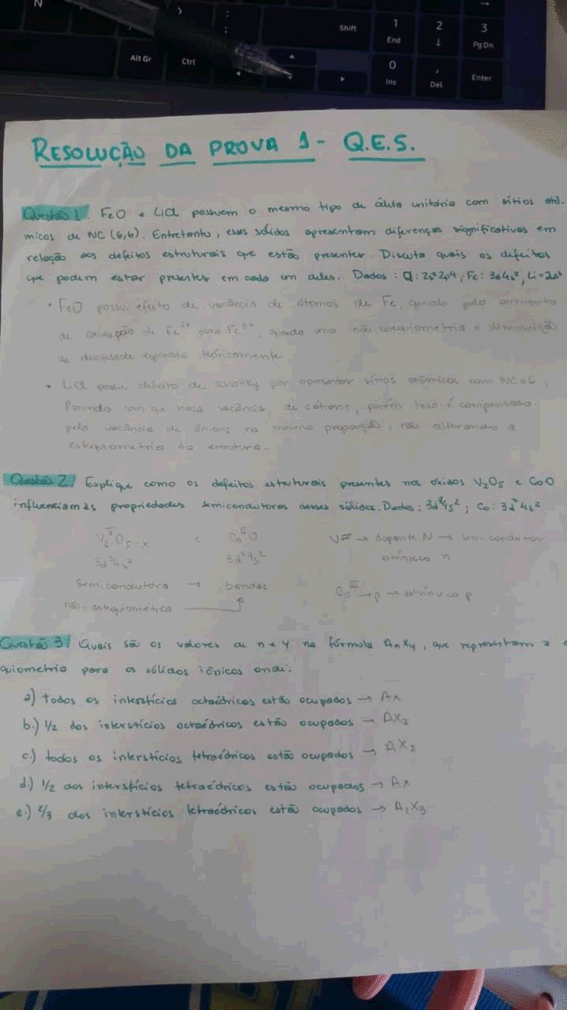 Shift
1
End
2
↓
3
Pg Dn
Alt Gr
Ctrl
0
Ins
,
Del
Enter
RESOLUÇÃO DA PROVA 1 - Q.E.S.
Questão 1. FeO e LiCl possuem o mesmo tipo de célula unitária com sítios atô-
micos de NC (6,6). Entretanto, esses sólidos apresentam diferenças significativas em
relação aos defeitos estruturais que estão presentes. Discuta quais os defeitos
que podem estar presentes em cada um deles. Dados: Cl: 2s²2p⁴, Fe: 3d⁶4s²,
• FeO possui efeito de vacância de átomos de Fe, pelo aumento
de oxidação de Fe²⁺ para Fe³⁺, uma não estequiometria e diminuição
da densidade teoricamente
• LiCl possui defeito de Schottky por apresentar sítios com NC=6,
fazendo com que haja vacância de cátions, porém isso é compensado
pela vacância de ânions na mesma proporção, não alterando a
estequiometria da estrutura.
Questão 2. Explique como os defeitos estruturais presentes nos óxidos V₂O₅ e CoO
influenciam as propriedades semicondutoras desses sólidos. Dados: 3d³4s²; Co: 3d⁷4s²
V₂O₅₋ₓ e CoO V → dopante N → semicondutor
3d³4s² 3d⁷4s² n
Semicondutora → bandas Co → p → p
não estequiométrica
Questão 3. Quais são os valores de n e y na fórmula AₙXy, que representam a e
quiometria para os sólidos iônicos onde:
a) todos os interstícios octaédricos estão ocupados → AX
b.) 1/2 dos interstícios octaédricos estão ocupados → AX₂
c.) todos os interstícios tetraédricos estão ocupados → AX₂
d.) 1/2 dos interstícios tetraédricos estão ocupados → AX
e.) 2/3 dos interstícios tetraédricos estão ocupados →